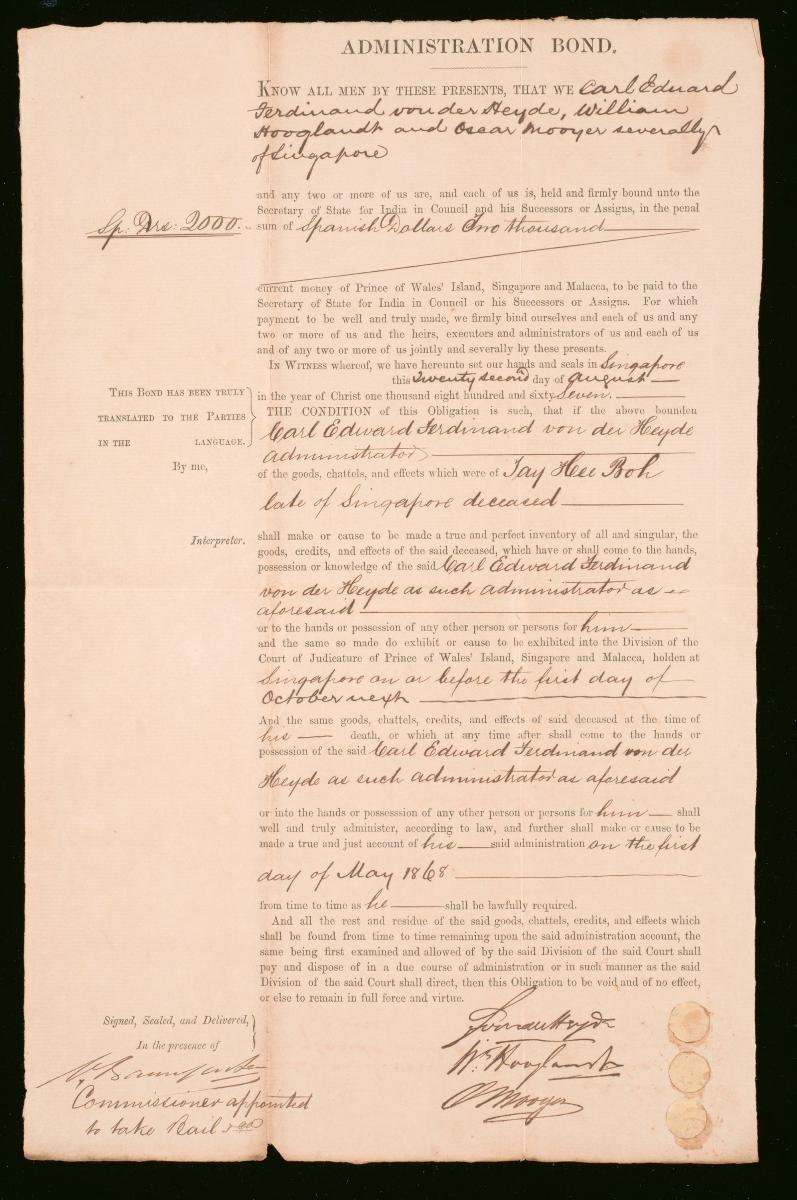 ADMINISTRATION BOND.
KNOW ALL MEN BY THESE PRESENTS, THAT WE Carl Eduard
Ferdinand von der Heyde, William
Hooglandt and Oscar Mooyer severally
of Singapore
and any two or more of us are, and each of us is, held and firmly bound unto the
Secretary of State for India in Council and his Successors or Assigns, in the penal
Sp: Drs: 2000.
sum of Spanish Dollars Two thousand
current money of Prince of Wales' Island, Singapore and Malacca, to be paid to the
Secretary of State for India in Council or his Successors or Assigns. For which
payment to be well and truly made, we firmly bind ourselves and each of us and any
two or more of us and the heirs, executors and administrators of us and each of us
and of any two or more of us jointly and severally by these presents.
IN WITNESS whereof, we have hereunto set our hands and seals in Singapore
this Twenty second day of August
in the year of Christ one thousand eight hundred and sixty Seven.
THIS BOND HAS BEEN TRULY
TRANSLATED TO THE PARTIES
IN THE LANGUAGE.
By me,
Interpreter.
THE CONDITION of this Obligation is such, that if the above bounden
Carl Edward Ferdinand von der Heyde
administrator
of the goods, chattels, and effects which were of Tay Hee Boh
late of Singapore deceased
shall make or cause to be made a true and perfect inventory of all and singular, the
goods, credits, and effects of the said deceased, which have or shall come to the hands,
possession or knowledge of the said Carl Edward Ferdinand
von der Heyde as such administrator as
aforesaid
or to the hands or possession of any other person or persons for him
and the same so made do exhibit or cause to be exhibited into the Division of the
Court of Judicature of Prince of Wales' Island, Singapore and Malacca, holden at
Singapore on or before the first day of
October next
And the same goods, chattels, credits, and effects of said deceased at the time of
his death, or which at any time after shall come to the hands or
possession of the said Carl Edward Ferdinand von der
Heyde as such administrator as aforesaid
or into the hands or possesssion of any other person or persons for him shall
well and truly administer, according to law, and further shall make or cause to be
made a true and just account of his said administration on the first
day of May 1868
from time to time as he shall be lawfully required.
And all the rest and residue of the said goods, chattels, credits, and effects which
shall be found from time to time remaining upon the said administration account, the
same being first examined and allowed of by the said Division of the said Court shall
pay and dispose of in a due course of administration or in such manner as the said
Division of the said Court shall direct, then this Obligation to be void and of no effect,
or else to remain in full force and virtue.
Signed, Sealed, and Delivered,
In the presence of
Commissioner appointed
to take Bail &ca
vonderHeyde
Wm Hooglandt
O Mooyer